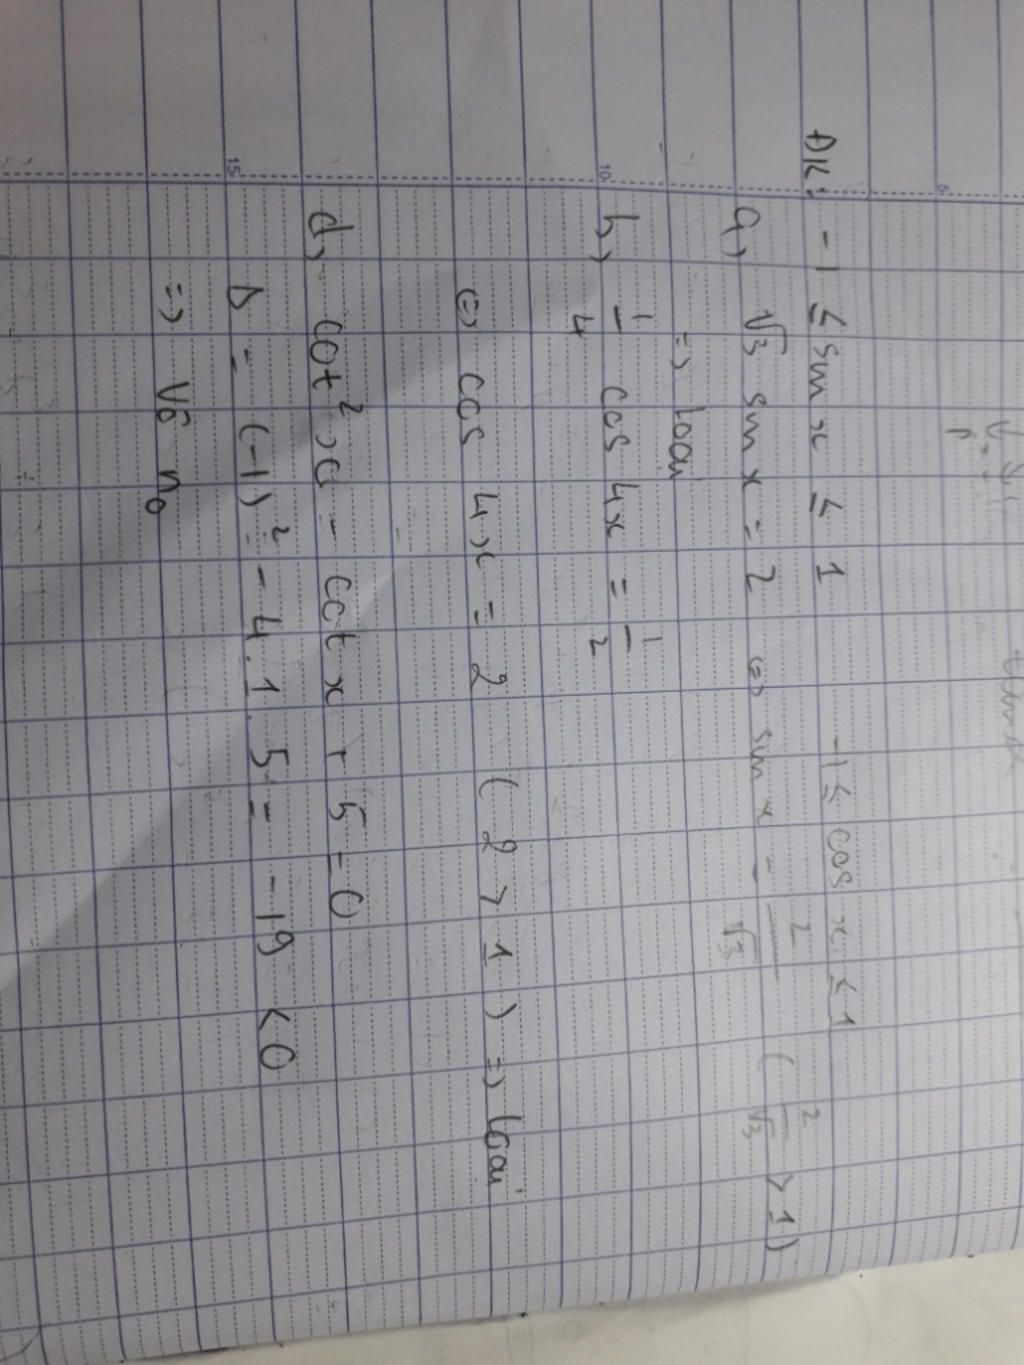 ĐK: -1 ≤ sin x ≤ 1 -1 ≤ cos x ≤ 1
a, √3 sin x = 2 <=> sin x = 2/√3 (2/√3 > 1)
=> loại
b, 1/4 cos 4x = 1/2
<=> cos 4x = 2 (2 > 1) => loại
d, cot² x - cot x + 5 = 0
Δ = (-1)² - 4.1.5 = -19 < 0
=> Vô no